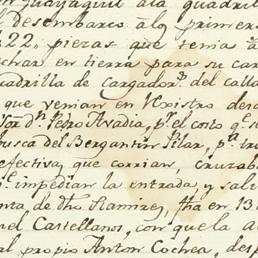 Guayaquil âla quadrill
desembarco âlos primers
422,, piezas que tenia â
char en tierra para su car
uadrilla de Cargador.s del calla
que venian en Rexistro desd
or d.n Pedro Avadia, p.r el costo q.e s
busca del Bergantin Pilar, p.a tra
efectiva, que corrian, cruzab
impedian la entrada y sali
nta de dho Ramirez, fha en 13 d
el Castellanos, con que la a
al propio Anton Cochea, desp